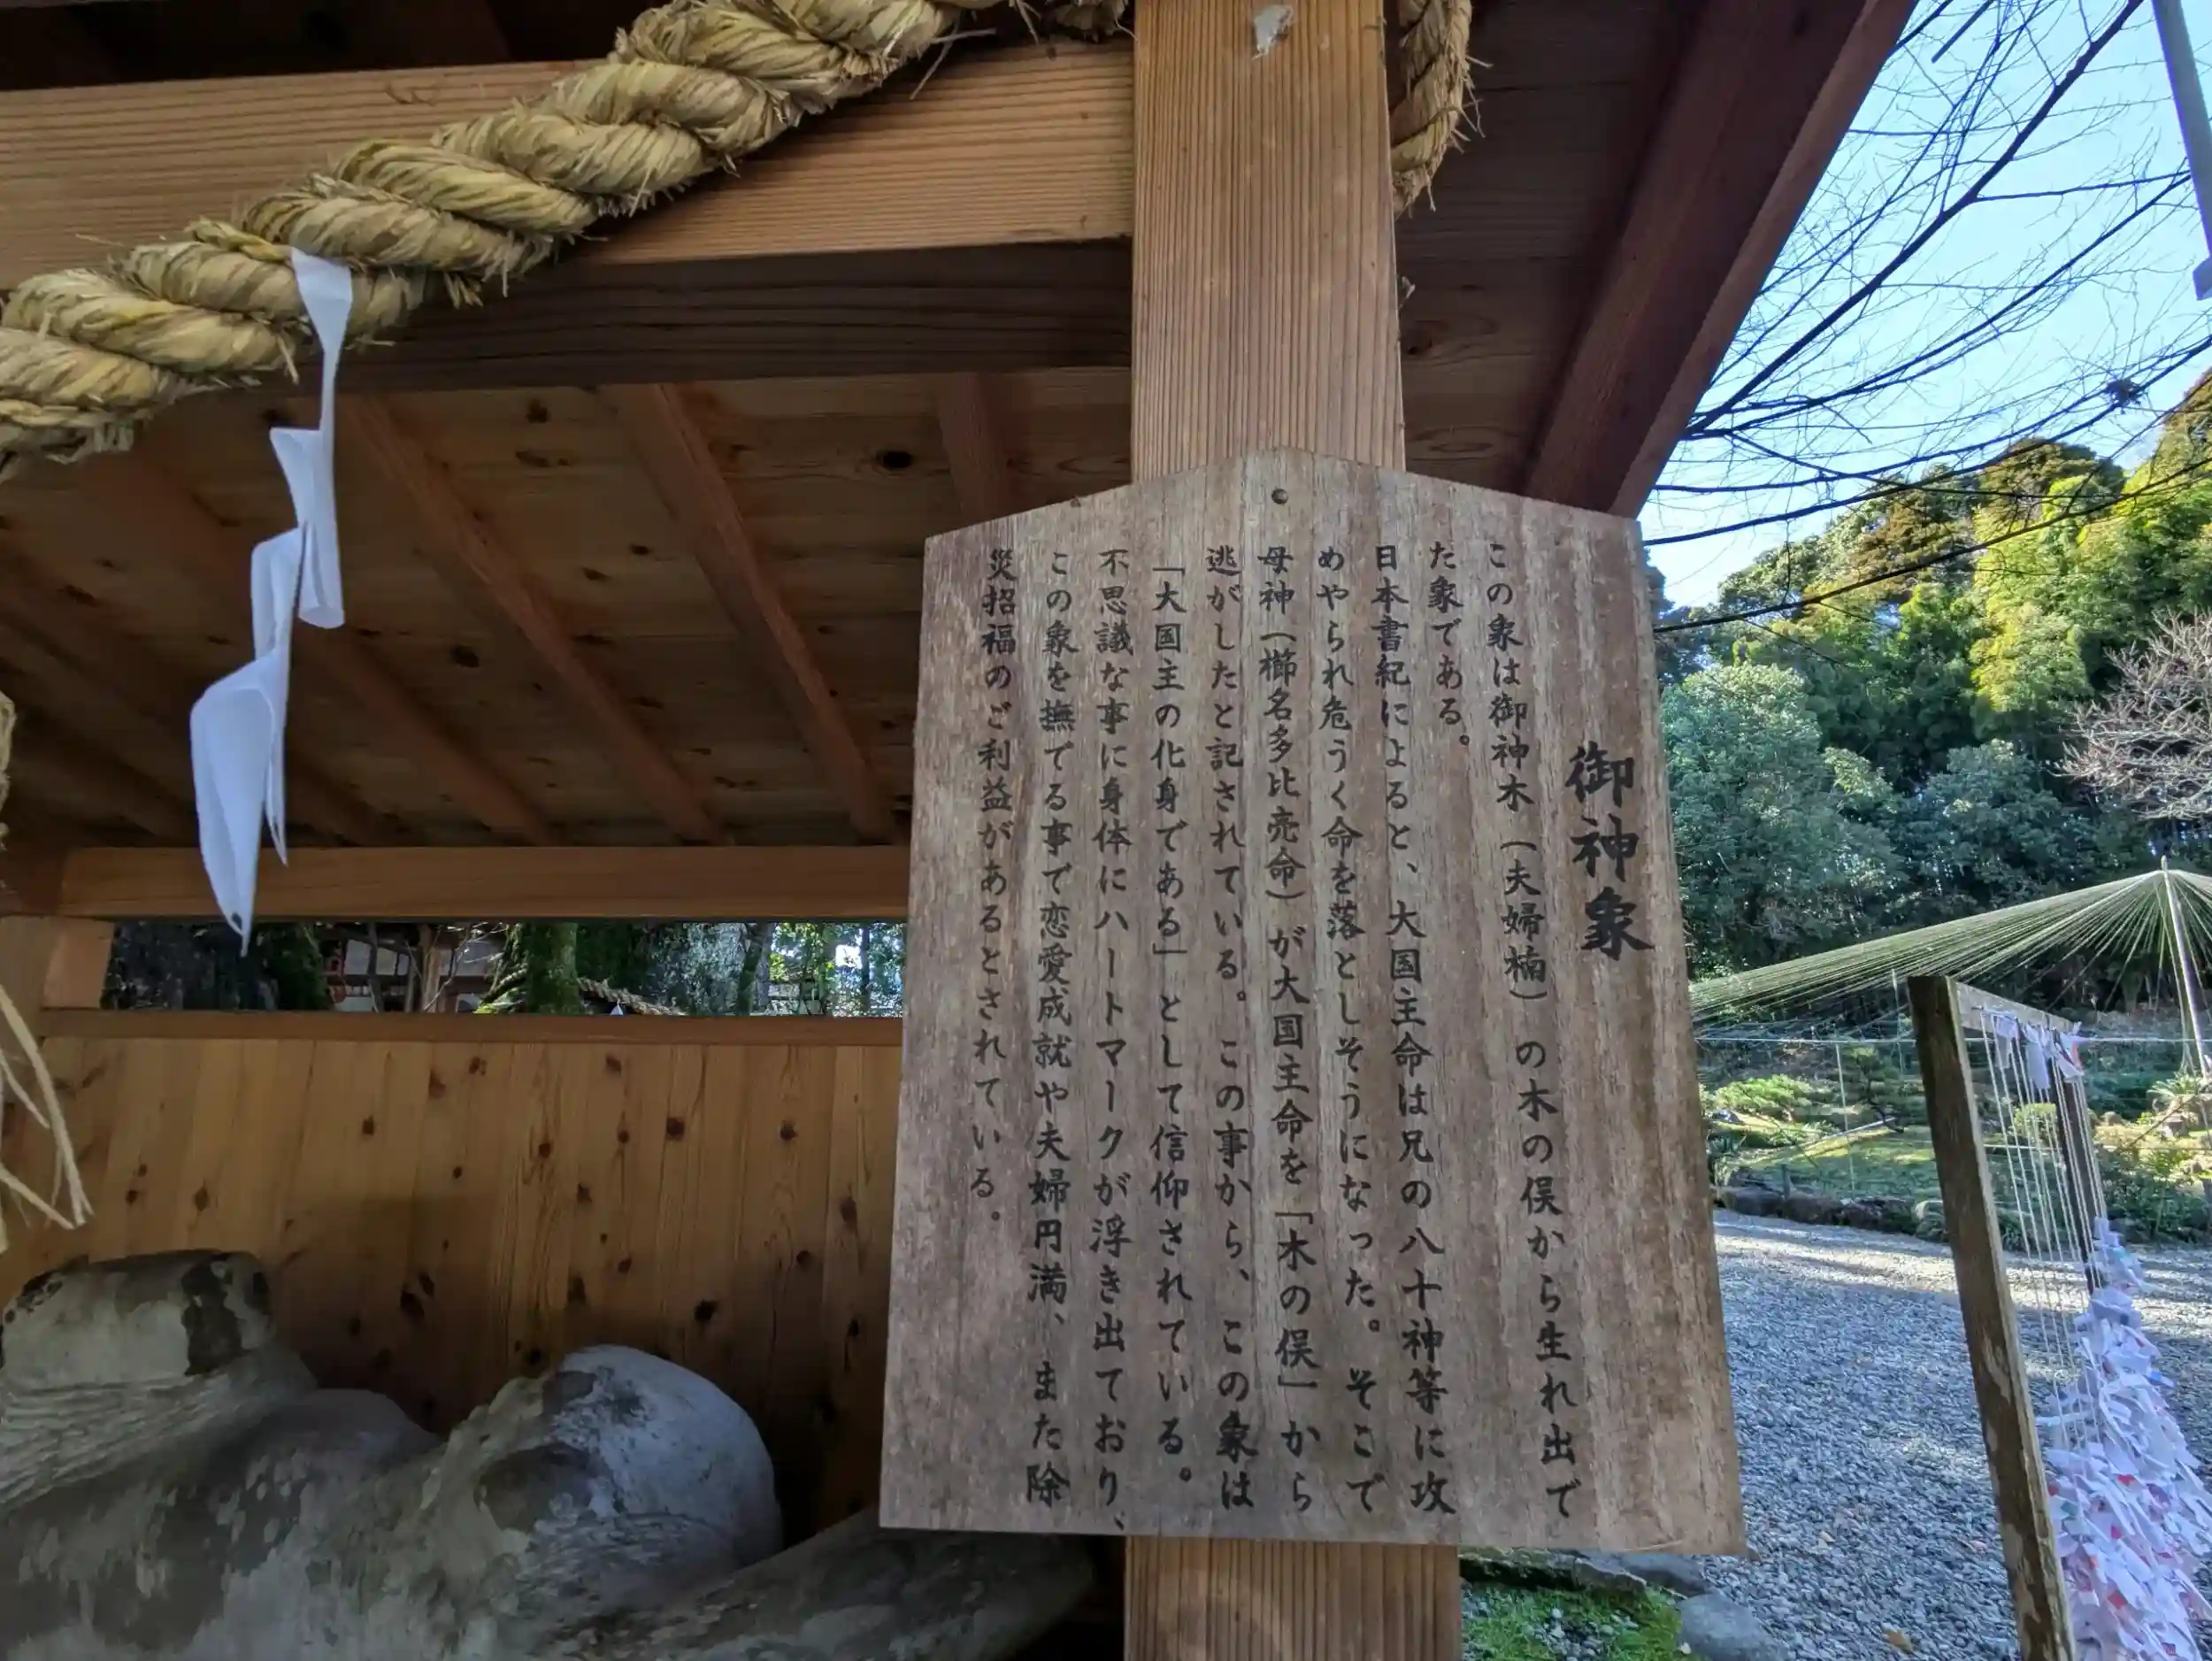 御神象
この象は御神木（夫婦楠）の木の俣から生れ出で
た象である。
日本書紀によると、大国主命は兄の八十神等に攻
めやられ危うく命を落としそうになった。そこで
母神（櫛名多比売命）が大国主命を「木の俣」から
逃がしたと記されている。この事から、この象は
「大国主の化身である」として信仰されている。
不思議な事に身体にハートマークが浮き出ており、
この象を撫でる事で恋愛成就や夫婦円満、また除
災招福のご利益があるとされている。